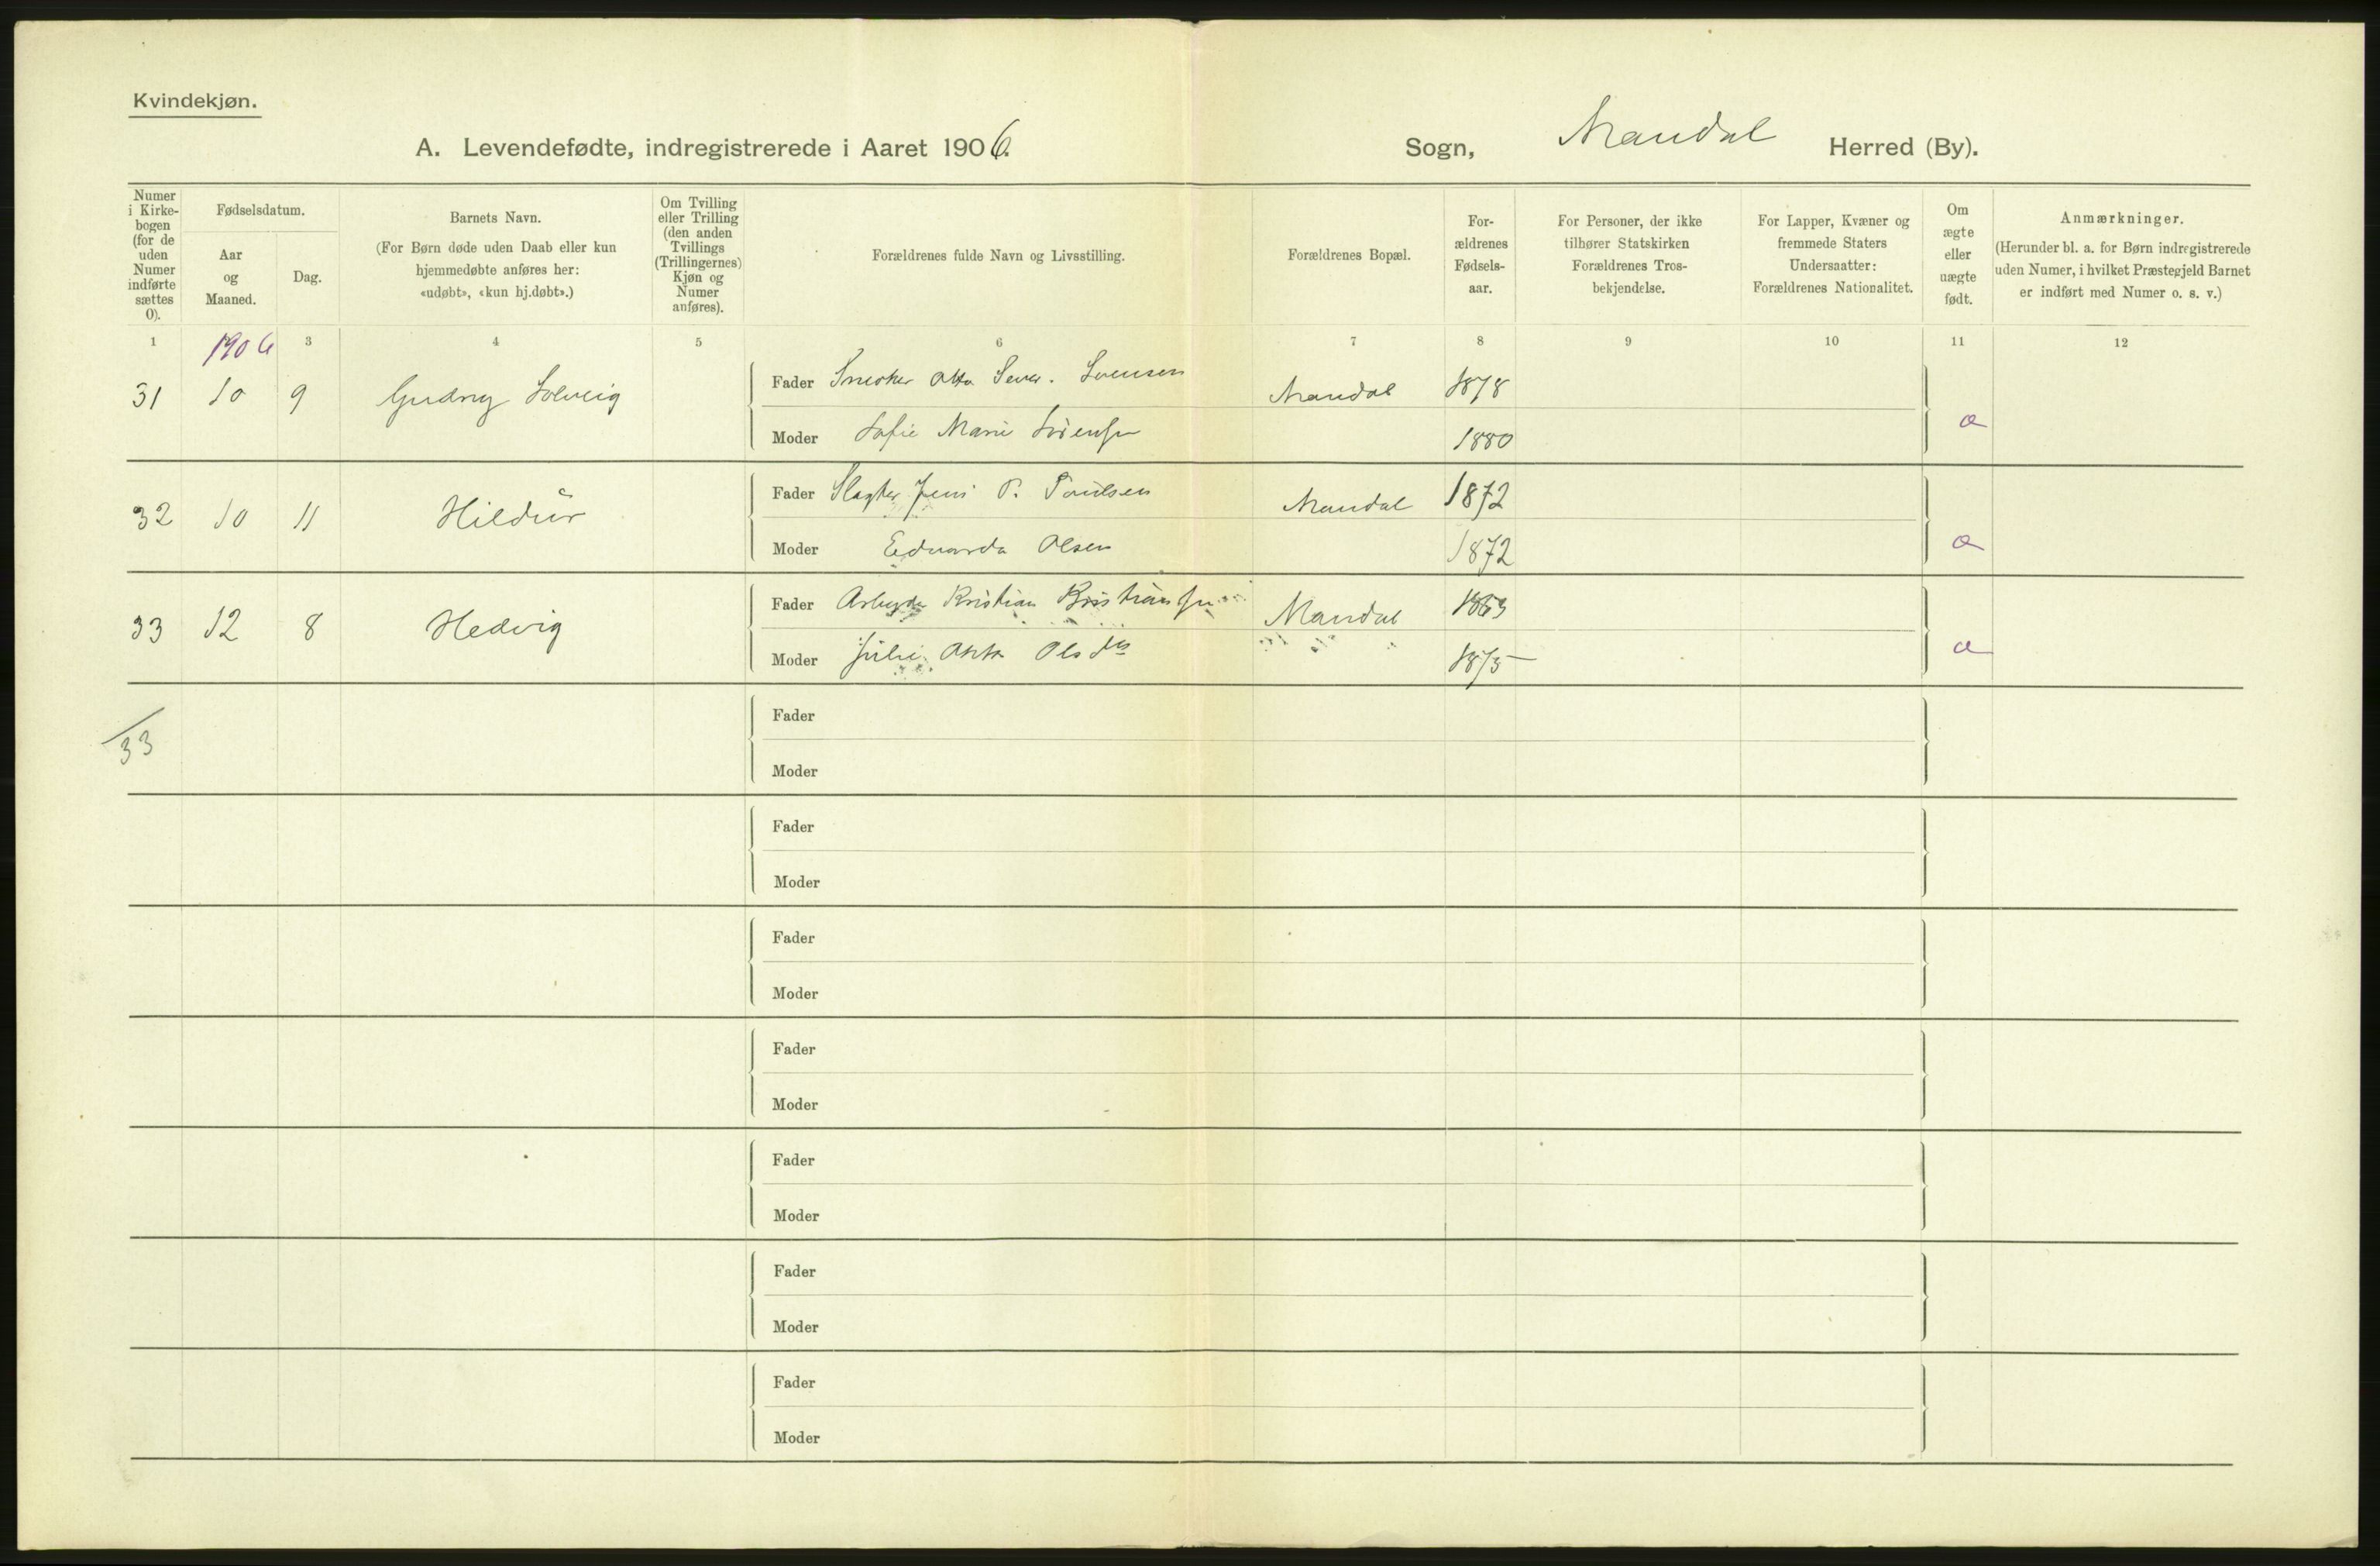 Kvindekjøn.
A. Levendefødte, indregistrerede i Aaret 1906.
Sogn, Mandal Herred (By).
Numer i Kirkebogen (for de uden Numer indførte sættes 0).
Fødselsdatum.
Aar og Maaned.
Dag.
Barnets Navn.
(For Børn døde uden Daab eller kun hjemmedøbte anføres her: «udøbt», «kun hj.døbt».)
Om Tvilling eller Trilling (den anden Tvillings (Trillingernes) Kjøn og Numer anføres).
Forældrenes fulde Navn og Livsstilling.
Forældrenes Bopæl.
Forældrenes Fødselsaar.
For Personer, der ikke tilhører Statskirken Forældrenes Trosbekjendelse.
For Lapper, Kvæner og fremmede Staters Undersaatter: Forældrenes Nationalitet.
Om ægte eller uægte født.
Anmærkninger.
(Herunder bl. a. for Børn indregistrerede uden Numer, i hvilket Præstegjeld Barnet er indført med Numer o. s. v.)
1 1906 3 4 5 6 7 8 9 10 11 12
31 10 9 Gudny Solveig Fader Snedker Otto Sever. Mandal 1878
Moder Sofie Marie 1880
32 10 11 Hildur Fader Slagter Jens P. Poulsen Mandal 1872
Moder Edvarda Olsen 1872
33 12 8 Hedvig Fader Arbeyder Kristian Kristiansen Mandal 1863
Moder Julie Olsdtr 1875
33
Fader
Moder
Fader
Moder
Fader
Moder
Fader
Moder
Fader
Moder
Fader
Moder
Fader
Moder